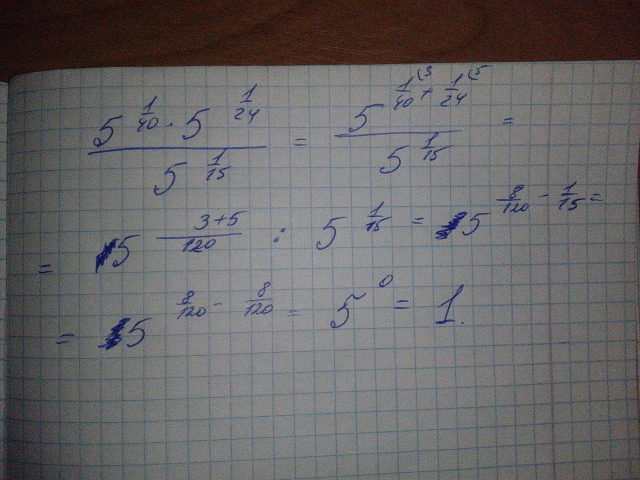 (5^(1/40) · 5^(1/24)) / 5^(1/15) = 5^(1/40 (3 + 1/24 (5) / 5^(1/15) =
= 5^((3+5)/120) : 5^(1/15) = 5^(8/120 - 1/15) =
= 5^(8/120 - 8/120) = 5^0 = 1.